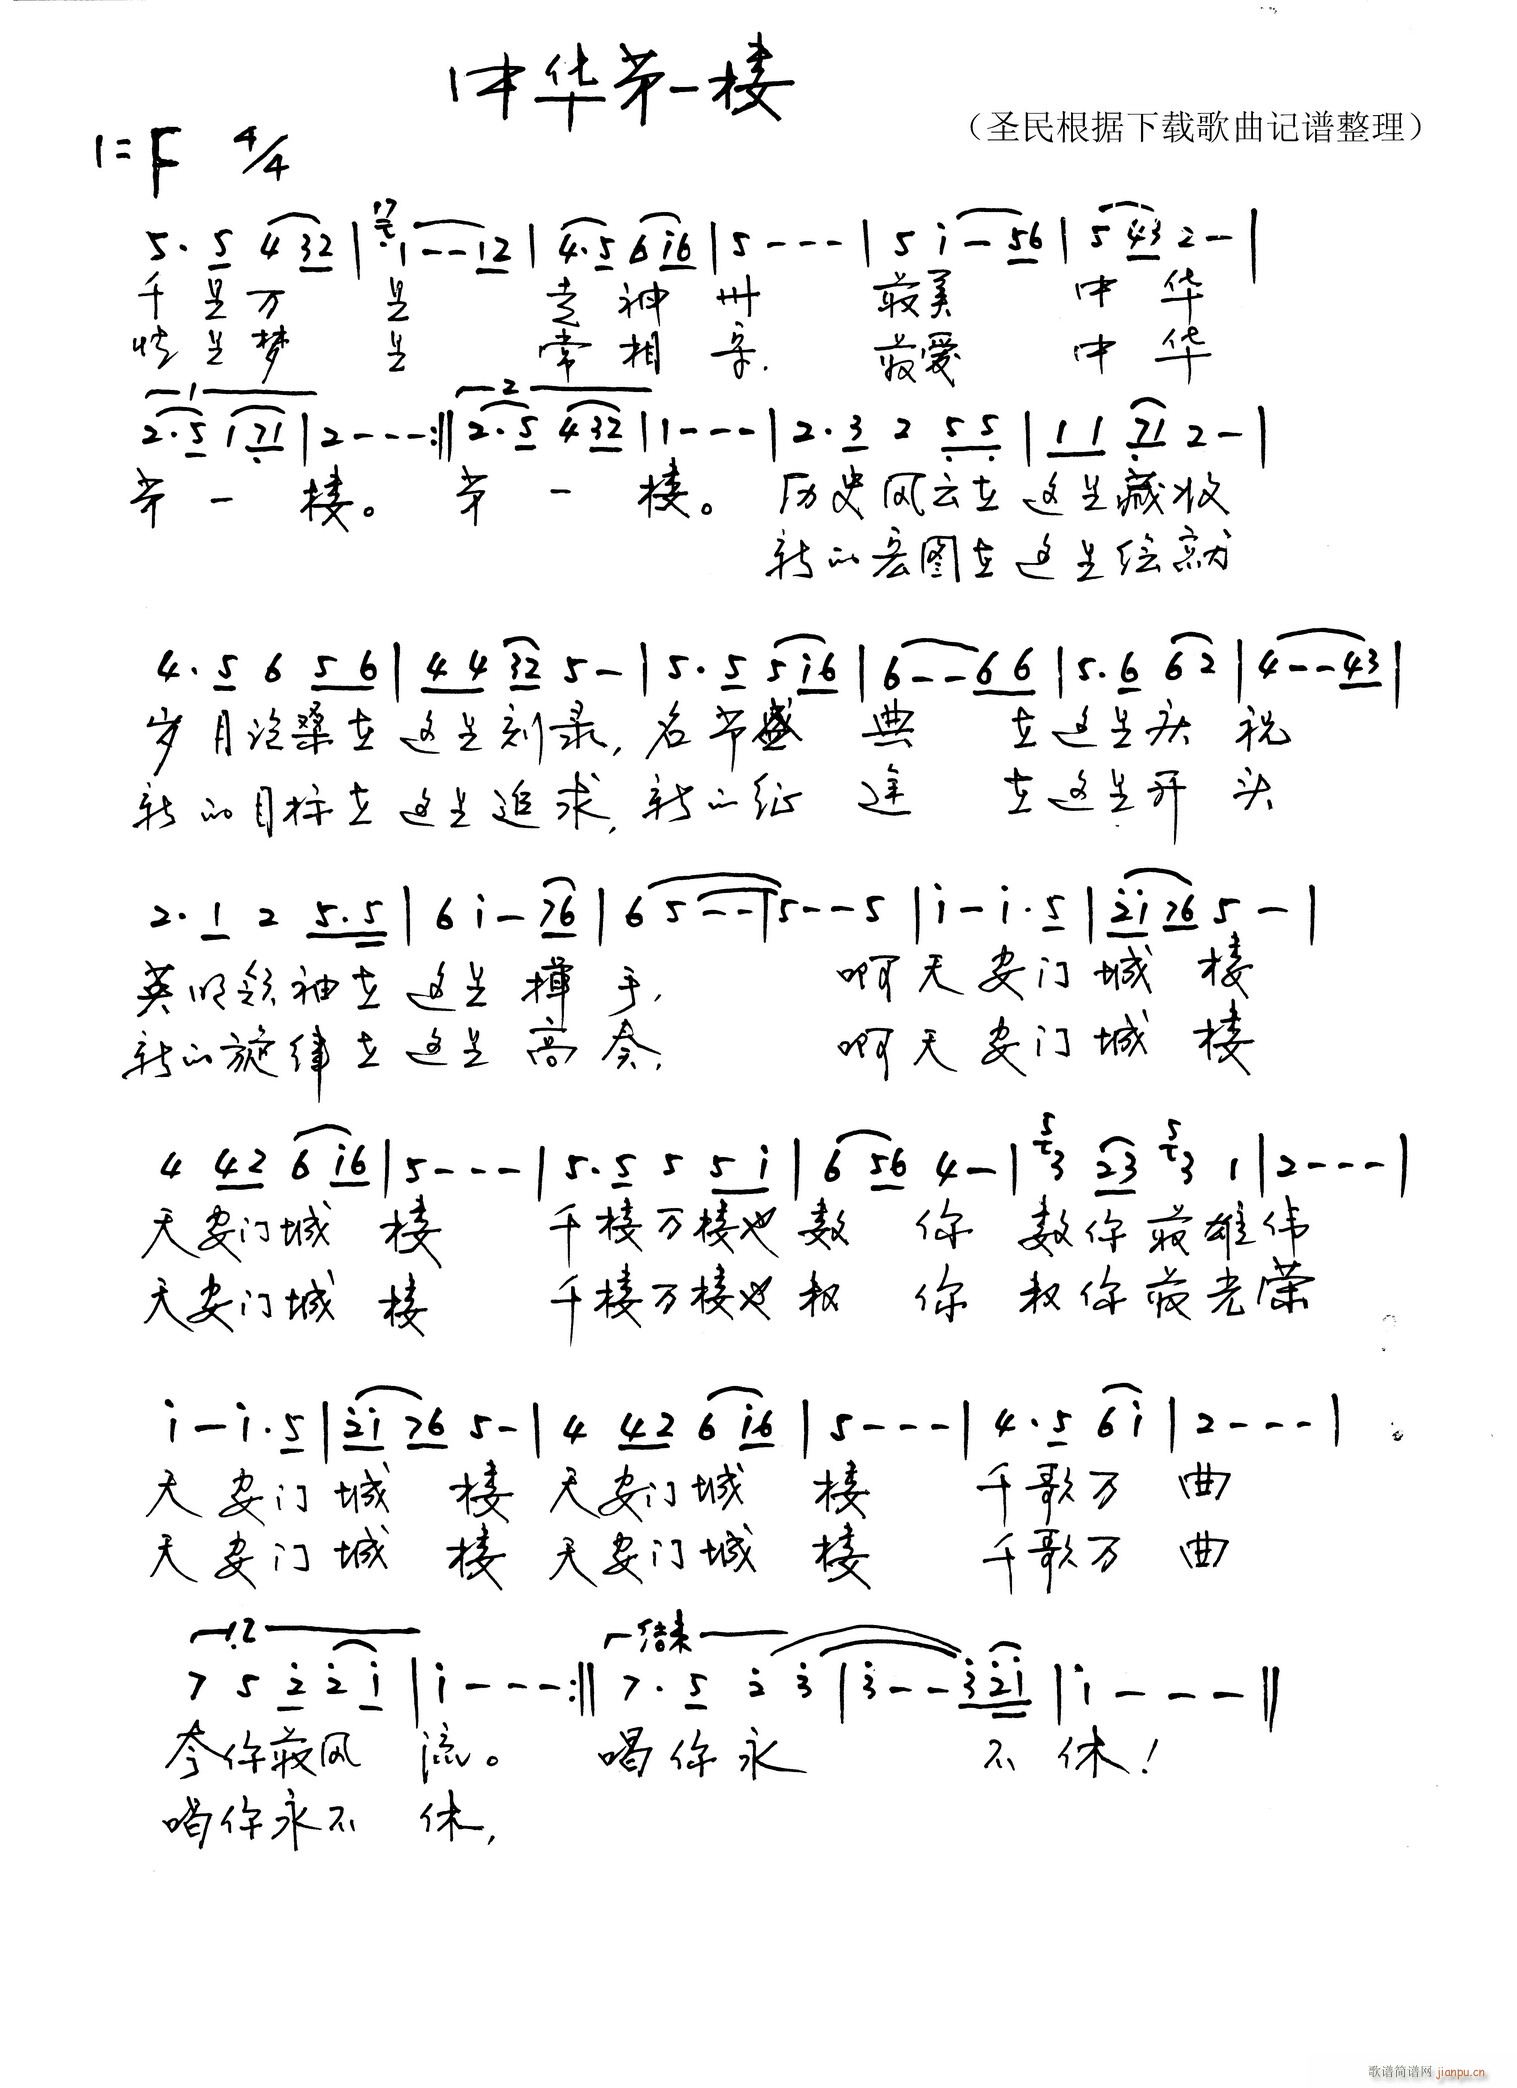 中华第一楼
（圣民根据下载歌曲记谱整理）
1=F 4/4
5·5 4 32 | 1--12 | 4·5 6 i6 | 5--- | 5 i-56 | 5 43 2- |
千里万里 走神州 最美 中华
情里梦里 常相守. 最爱 中华
1 2
2·5 1 71 | 2---:|| 2·5 4 32 | 1--- | 2·3 2 5 5 | 1 1 71 2- |
第一楼。第一楼。历史风云在这里藏收
新的宏图在这里绘就
4·5 6 5 6 | 4 4 32 5- | 5·5 5 i6 | 6--6 6 | 5·6 6 2 | 4--43 |
岁月沧桑在这里刻录, 名节盛典 在这里庆祝
新的目标在这里追求, 新的征途 在这里开头
2·1 2 5·5 | 6 i-76 | 6 5-- | 5--5 | i-i·5 | 2i 76 5- |
英明领袖在这里挥手, 啊天安门城楼
新的旋律在这里高奏, 啊天安门城楼
4 42 6 i6 | 5--- | 5·5 5 5 i | 6 56 4- | 5 3 23 5 3 1 | 2--- |
天安门城楼 千楼万楼也数你 数你最雄伟
天安门城楼 千楼万楼也权你 权你最光荣
i-i·5 | 2i 76 5- | 4 42 6 i6 | 5--- | 4·5 6 i | 2--- |
天安门城楼 天安门城楼 千歌万曲
天安门城楼 天安门城楼 千歌万曲
1.2 结束
7 5 2 2 i | i---:|| 7·5 2 3 | 3--3 2i | i--- ||
夸你最风流。 唱你永不休!
唱你永不休,
歌谱简谱网 jianpu.cn